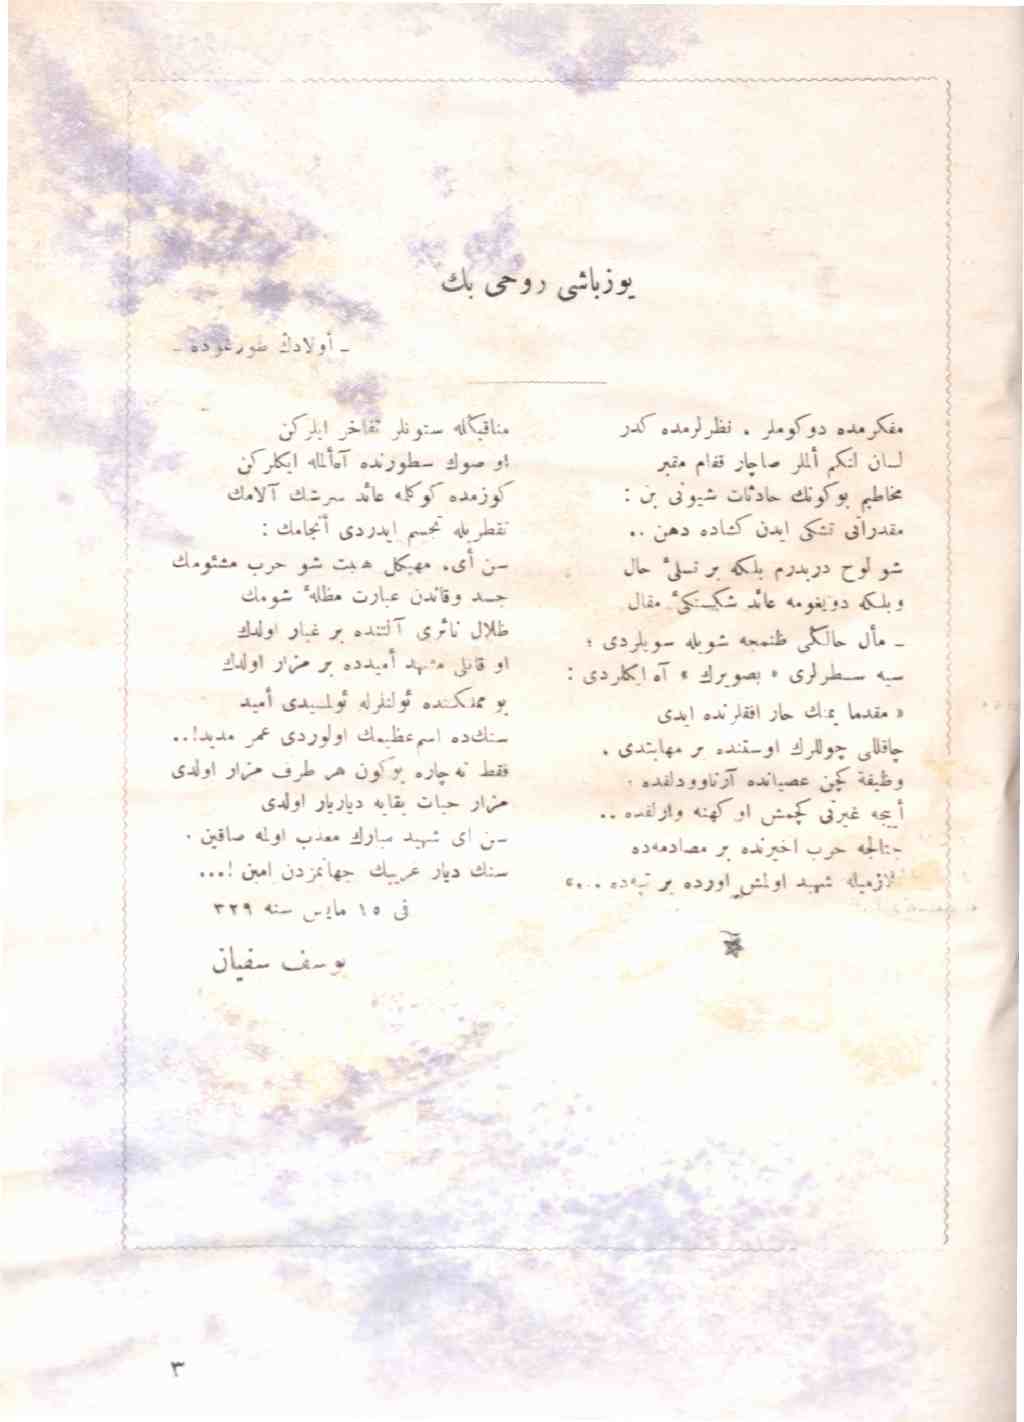 یوزباشی روحی بك
ـ أولادك طورغوده ـ
مفكرمده دوكوملر ، نظرلرمده كدر
لسان انكم ألملر صاچار قفام مقبر
مخاطبم بوكونك حادثات شیونی بن :
مقدراتی تشكی ایدن كشاده دهن ..
شو لوح دربدرم بلكه بر تسلئ حال
وبلكه دویغومه عائد شكسته‌كئ مقال
ـ مأل حالكی ظنمجه شویله سویلردی ؛
سیه سطرلری « بصویرك » آه ایكلردی :
« مقدما یمنك حار افقلرنده ایدی
چاقللی چوللرك اوستنده بر مهابتدی .
وظیفهٔ كچن عصیانده آرناوودلقده
أییجه غیرتی كچمش او كهنه وارلقده ..
چتالجه حرب اخیرنده بر مصادمه‌ده
شهید اولمش اورده بر تپه‌ده ...»
مناقبكله ستونلر تفاخر ایلركن
او صوك سطورنده آه‌ألمله ایكلركن
كوزمده كوكلمه عائد سرشك آلامك
تقطریله تجسم ایدردی أنجامك :
سن أی، مهیكل هیبت شو حرب مشئومك
جسد وقاندن عبارت مظلهٔ شومك
ظلال تاثری آلتنده بر غبار اولدك
او قانلی مشهد أمیدده بر مزار اولدك
بو مملكتده ئولنلرله ئولمسیدی أمید
سنك‌ده اسم‌عظیمك اولوردی عمر مدید!..
فقط نه چاره بوكون هر طرف مزار اولدی
مزار حیات بقایه دیاریار اولدی
سن ای شهید مبارك معذب اولمه صاقین .
سنك دیار غریبك جهانمزدن امین !...
فی ١٥ مایس سنه ٣٢٩
یوسف سفیان
٣